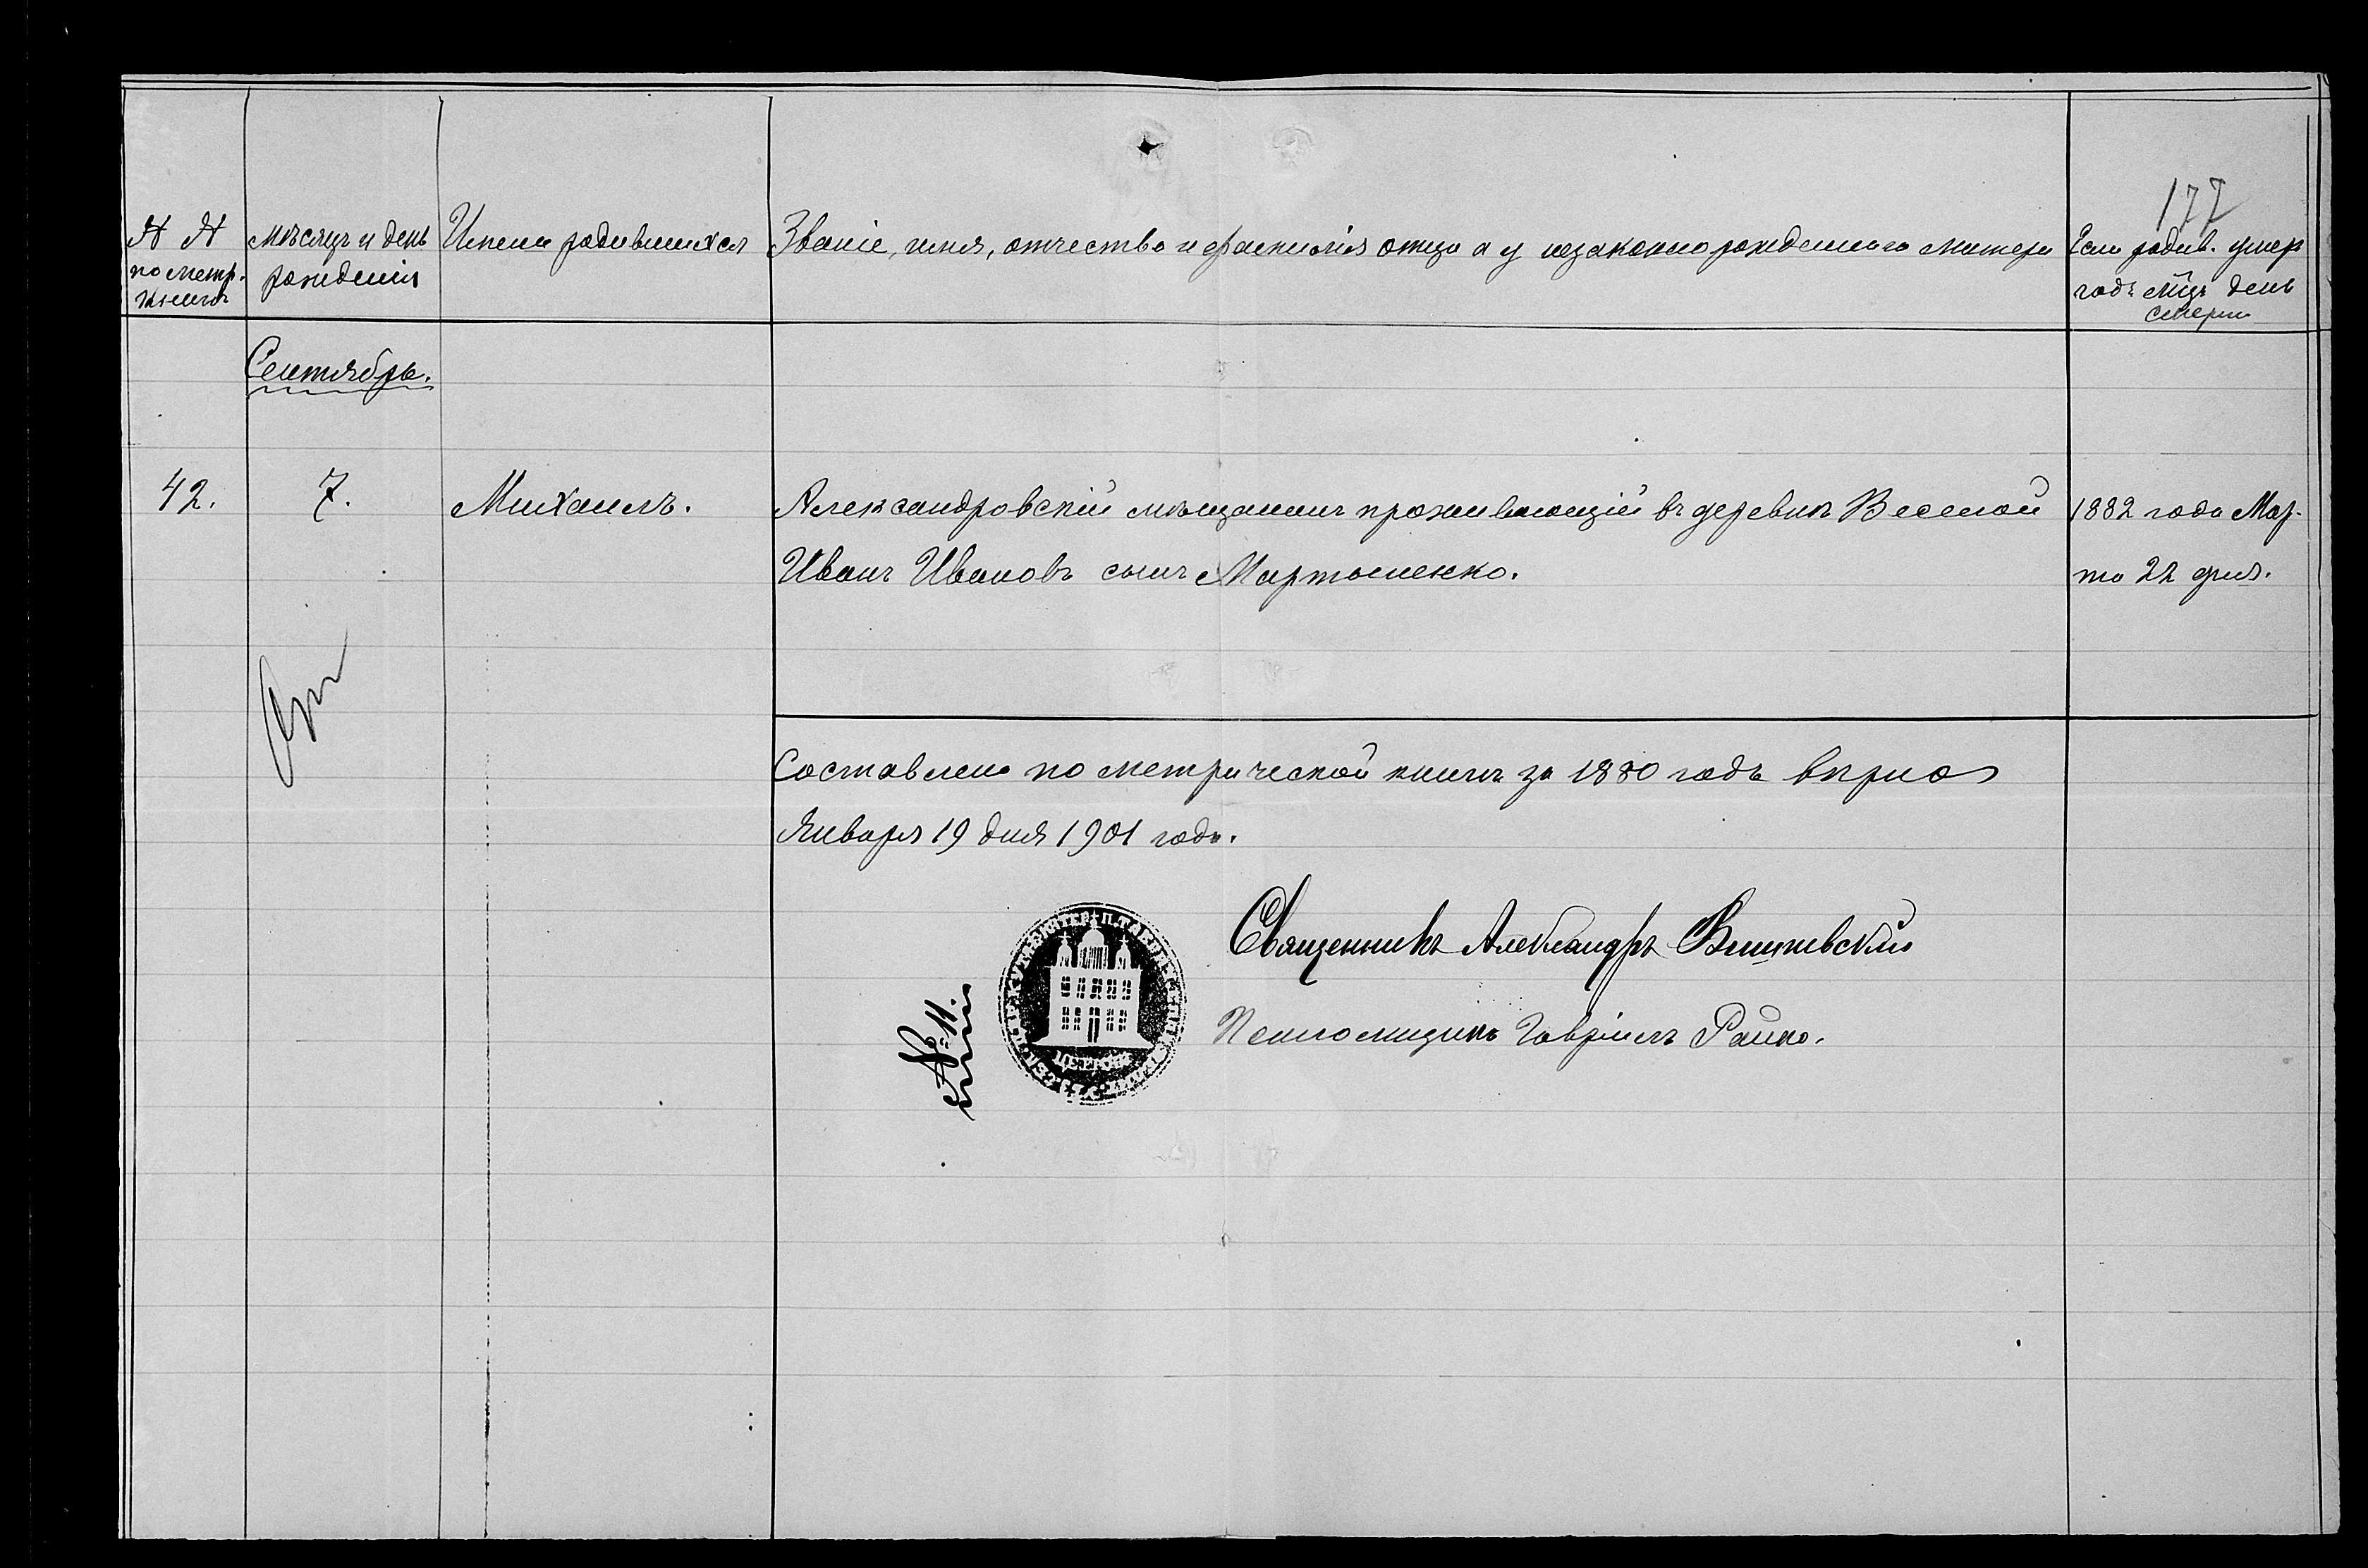 177
№ №
по метр.
книгѣ
мѣсяцъ и день
рожденія
Имена родившихся
Званіе, имя, отчество и фамилія отца а у незаконнорожденнаго матери
Если родив. умер
годъ м̃цъ день
смерти
Сентябрь.
42.
7.
Михаилъ.
Александровскій мѣщанинъ проживающій въ деревнѣ Веселой
Иванъ Ивановъ сынъ Мартыненко.
1882 года Мар-
та 22 дня.
Составлено по метрической книгѣ за 1880 годъ вѣрно
Января 19 дня 1901 года.
Священникъ Александръ
Псаломщикъ Гавріилъ Райко.